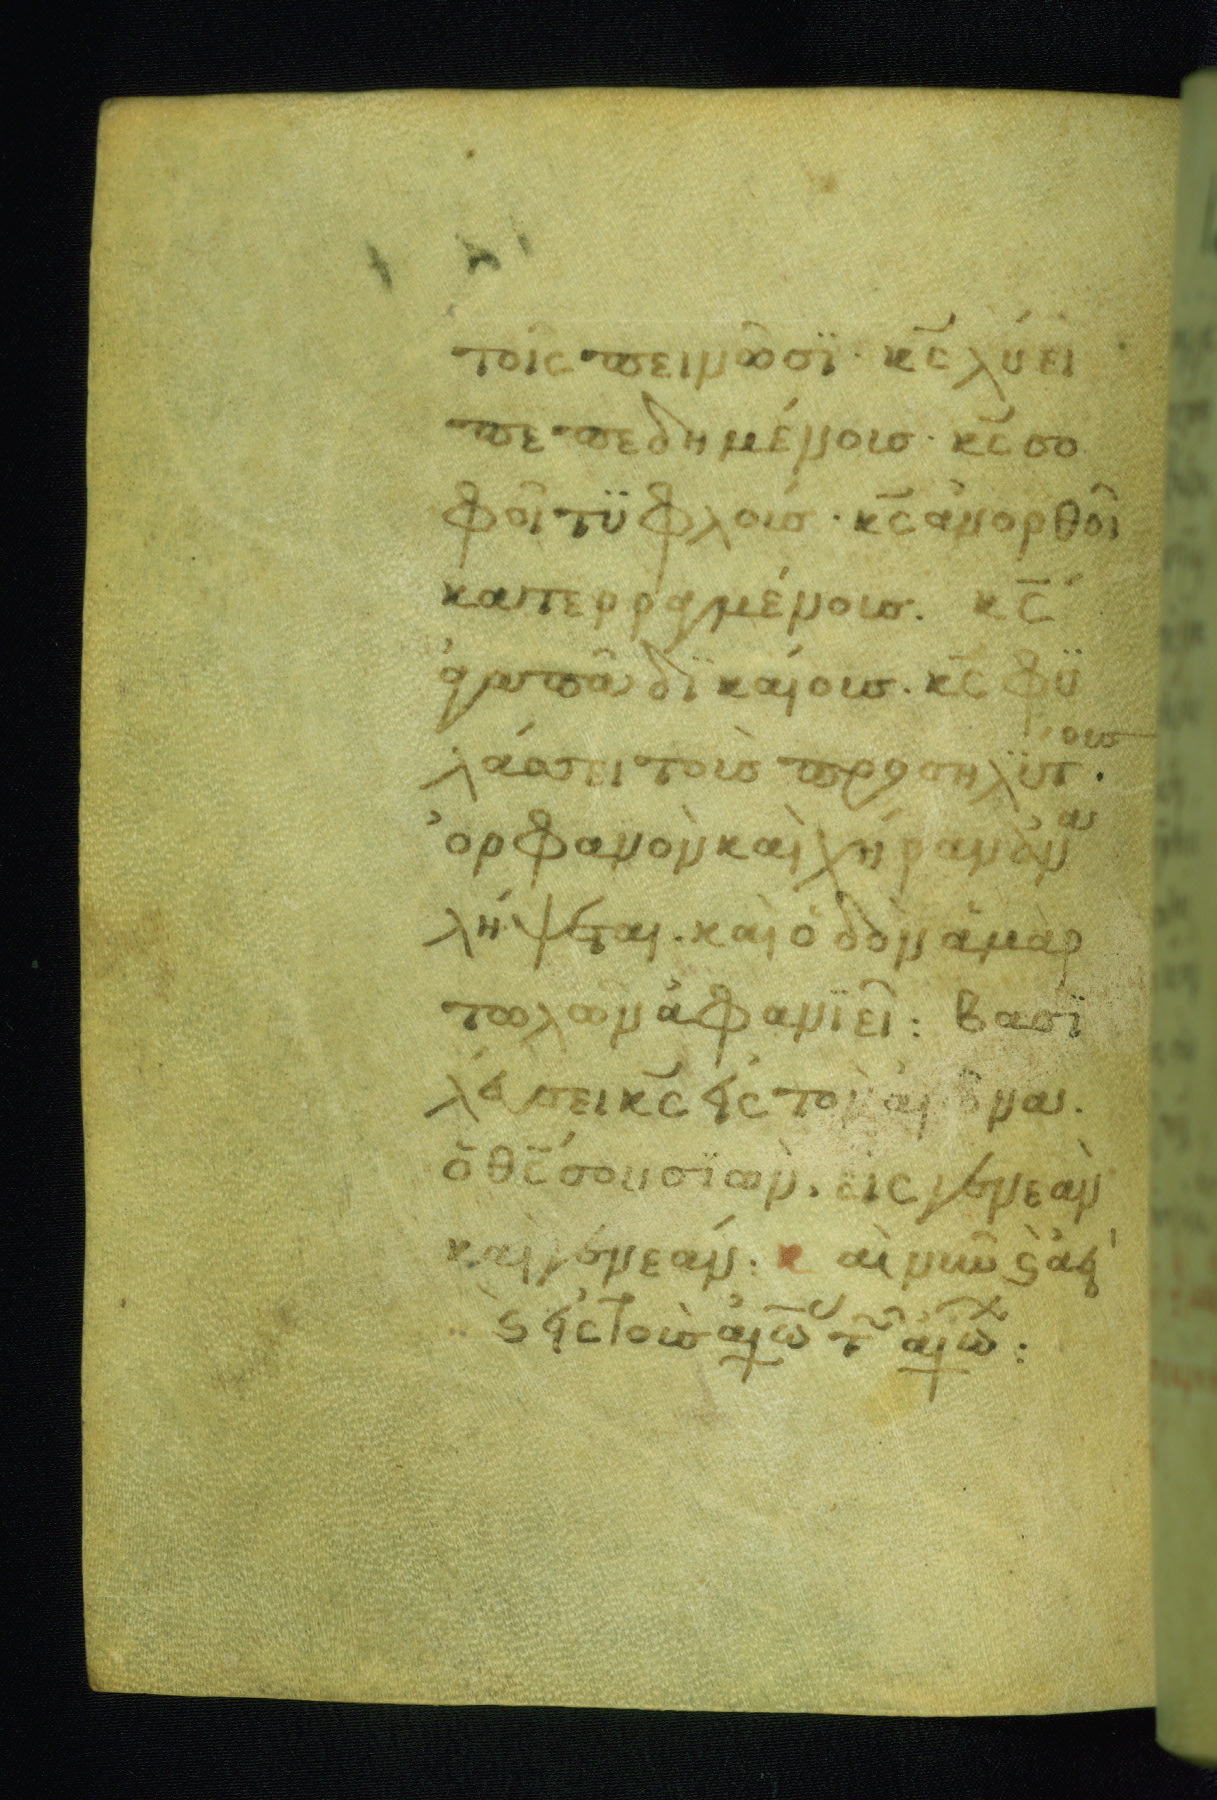 τοῖς πεινῶσϊ· κ̅ς λύει
πεπεδημένοις· κ̅ς σο
φοῖ τϋφλοὺς· κ̅ς ἀνορθοῖ
κατερραγμένοις. κ̅ς
ἀγαπᾶ δϊκαίοις· κ̅ς φϋ
λάσσει τοὺς προσηλϋτ
οις.
ὀρφανὸν καὶ χήραν ἀν
αλήψεται· καὶ ὁδὸν ἁμαρ
τωλῶν ἀφανϊεῖ: βασϊ
λεύσει κ̅ς εἰς τὸν αἰῶναι.
ὁ θ̅ς σου σϊὼν, εἰς γενεὰν
καὶ γενεάν: καὶ νῦν ϛ ἀεὶ
ϛ εἰς τοὺς αἰῶ τῶ αἰώ: